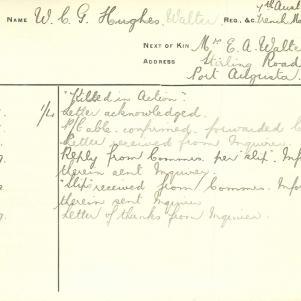 7th Aust
NAME W. C. G. Hughes Walter REG., &c. Trench Mo
NEXT OF KIN Mrs E. A. Walte
ADDRESS Stirling Road
Port Augusta.
"Killed in Action".
1/14 Letter acknowledged.
P/Cable. confirmed. forwarded
Letter received from Inquirer
Reply from Commrs. per "slip". Infor
therein sent Inquirer
"Slip" received from Commrs. Infor
therein sent Inquirer
Letter of thanks from Inquirer.